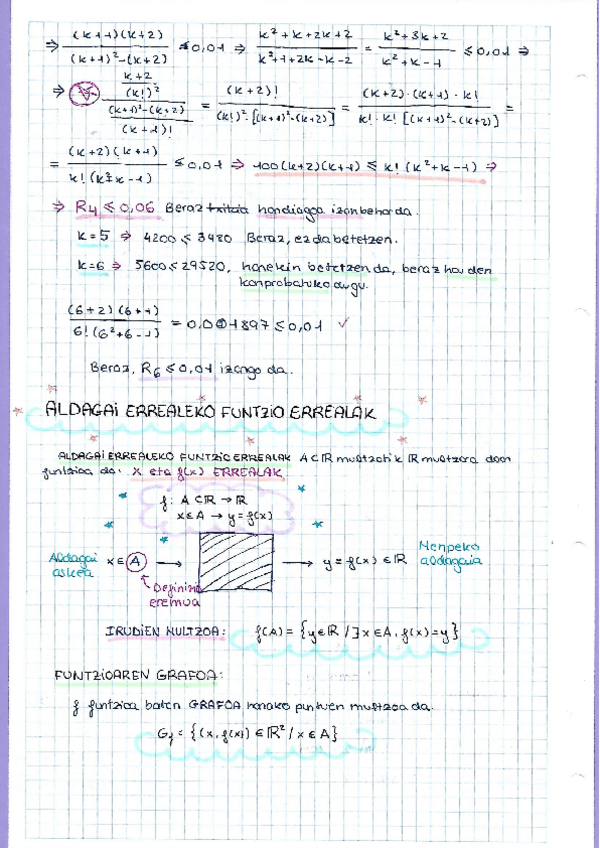 ⇒ (k+1)(k+2) / ((k+1)²-(k+2)) ≤ 0,01 ⇒ (k²+k+2k+2) / (k²+1+2k-k-2) = (k²+3k+2) / (k²+k-1) ≤ 0,01 ⇒
⇒ ((k+2) / (k!)²) / (((k+1)²-(k+2)) / (k+1)!) = (k+2)! / ((k!)²·[(k+1)²-(k+2)]) = ((k+2)·(k+1)·k!) / (k!·k!·[(k+1)²-(k+2)]) =
= (k+2)(k+1) / (k!(k²+k-1)) ≤ 0,01 ⇒ 100(k+2)(k+1) ≤ k!(k²+k-1) ⇒
⇒ R4 ≤ 0,06 Beraz handiagoa izan behar da.
k=5 ⇒ 4200 ≤ 3480 Beraz, ez da betetzen.
k=6 ⇒ 5600 ≤ 29520, honekin betetzen da, beraz hau den
konprobatuko dugu.
(6+2)(6+1) / (6!(6²+6-1)) = 0,001897 ≤ 0,01 ✓
Beraz, R6 ≤ 0,01 izango da.
ALDAGAI ERREALEKO FUNTZIO ERREALAK
ALDAGAI ERREALEKO FUNTZIO ERREALAK A⊂ℝ multzotik ℝ multzora doan
funtzioa da: x eta f(x) ERREALAK.
f: A⊂ℝ → ℝ
x∈A → y=f(x)
Aldagai askea x∈A → → y=f(x)∈ℝ Menpeko aldagaia
Definizio
eremua
IRUDIEN MULTZOA: f(A)={y∈ℝ/∃x∈A, f(x)=y}
FUNTZIOAREN GRAFOA:
f funtzioa baten GRAFOA honako puntuen multzoa da.
Gf={(x,f(x))∈ℝ²/x∈A}